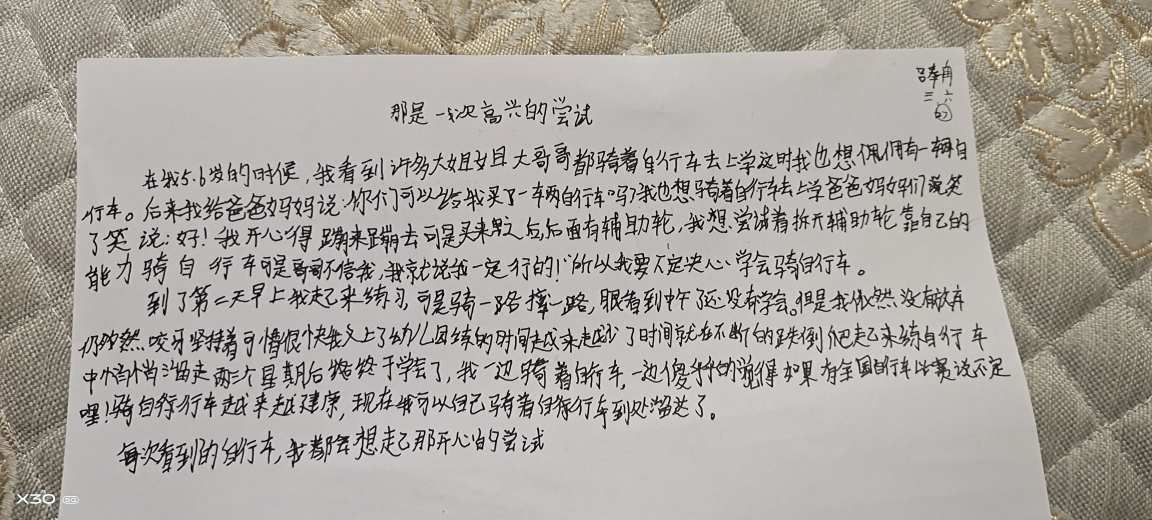 三 六
那是一次高兴的尝试
在我5.6岁的时候，我看到许多大姐姐且大哥哥都骑着自行车去上学这时我也想 俩拥有一辆自
行车。后来我给爸爸妈妈说：你们可以给我买了一车两自行车吗？我也想骑着自行车去上学爸爸妈妈们说笑
了笑说：好！我开心得蹦来蹦去可是买来 之后后面有辅助轮，我想尝试着拆开辅助轮靠自己的
能力骑自行车可是哥哥不信我，我就说我一定行的！所以我要下定决心学会骑自行车。
到了第二天早上我起来练习，可是骑一路摔一路，眼看到中午了还没有学会。但是我依然没有放弃
仍然 咬牙坚持着可惜很快我又上了幼儿园练的时间越来越少了时间就在不断的跌倒爬起来练自行车
中悄悄溜走两三个星期后 终于学会了，我一边骑着自行车，一边傻 的觉得如果有全国自行车比赛说不定
嘿！骑自行车越来越 ，现在我可以自己骑着自行车到处溜达了。
每次看到的自行车，我都会想起那开心的尝试
X30